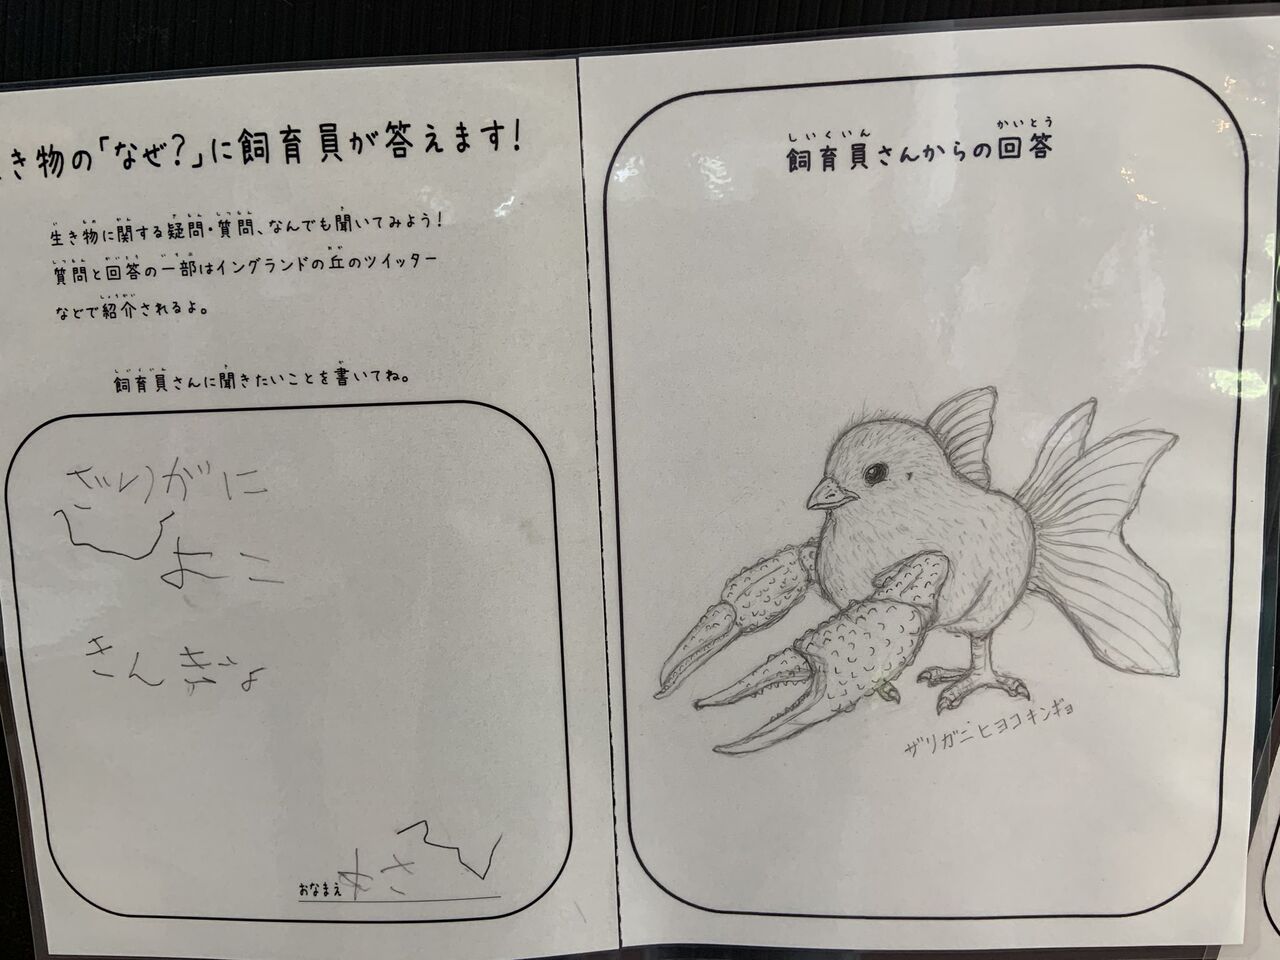 き物の「なぜ?」に飼育員が答えます!
生き物に関する疑問・質問、なんでも聞いてみよう!
質問と回答の一部はイングランドの丘のツイッター
などで紹介されるよ。
飼育員さんに聞きたいことを書いてね。
ざりがに
ひよこ
きんぎょ
おなまえ
飼育員さんからの回答
ザリガニヒヨコキンギョ